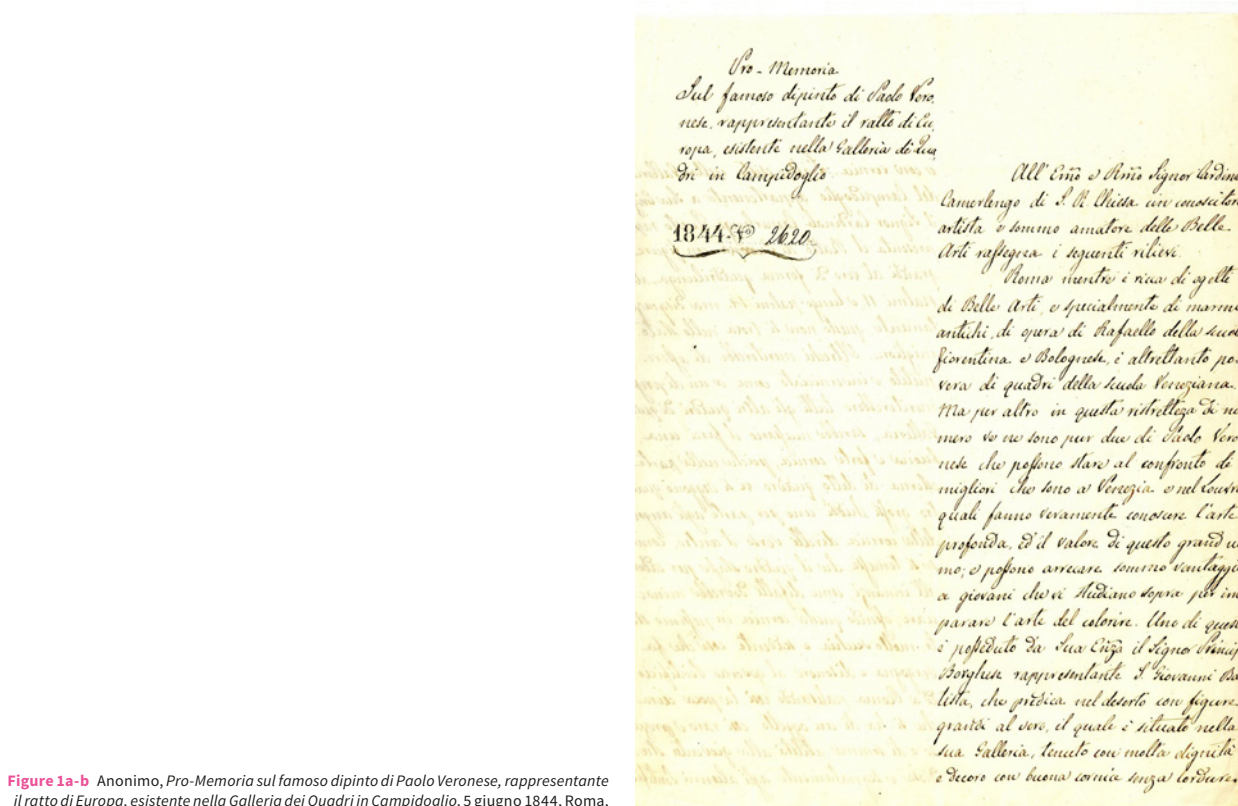 Pro-Memoria
Sul famoso dipinto di Paolo Vero,
nese, rappresentante il ratto di Eu,
ropa, esistente nella Galleria de' Qua,
dri in Campidoglio
1844. 2620
All' Emo e Rmo Signor Cardina
Camerlengo di S. R. Chiesa un conoscitore
artista e sommo amatore delle Belle
Arti rassegna i seguenti rilievi.
Roma mentre è ricca di ogetti
di Belle Arti, e specialmente di marmi
antichi, di opera di Rafaello della scuo
fiorentina e Bolognese, è altrettanto po
vera di quadri della scuola Veneziana.
Ma per altro in questa ristrettezza di nu
mero ve ne sono pur due di Paolo Vero
nese che possono stare al confronto de
migliori che sono a Venezia e nel Louvre
quali fanno veramente conoscere l'arte
profonda, ed il valore di questo grand u
mo; e possono arrecare sommo vantaggi
a giovani che vi studiano sopra per im
parare l'arte del colorire. Uno di quest
è posseduto da Sua Enza il Signor Princip
Borghese rappresentante S. Giovanni Ba
tista, che predica nel deserto con figure
grandi al vero, il quale è situato nella
sua Galleria, tenuto con molta dignità
e decoro con buona cornice senza lordure
Figure 1a-b Anonimo, Pro-Memoria sul famoso dipinto di Paolo Veronese, rappresentante
il ratto di Europa, esistente nella Galleria dei Quadri in Campidoglio. 5 giugno 1844. Roma,